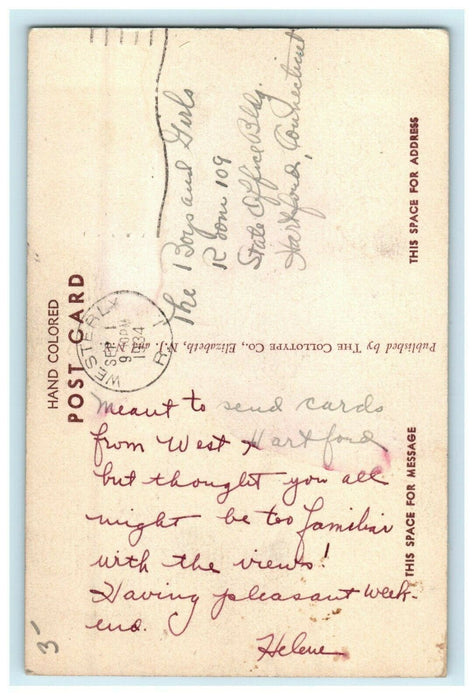 HAND COLORED
POST CARD
WESTERLY
SEP 1
9
1934
R.I.
THIS SPACE FOR ADDRESS
The Boys and Girls
Room 109
State Office Bldg.
Hartford, Connecticut
Published by THE COLLOTYPE CO., Elizabeth, N. J. and N. Y.
THIS SPACE FOR MESSAGE
Meant to send cards
from West Hartford
but thought you all
might be too familiar
with the views!
Having pleasant week-
end.
Helene
3